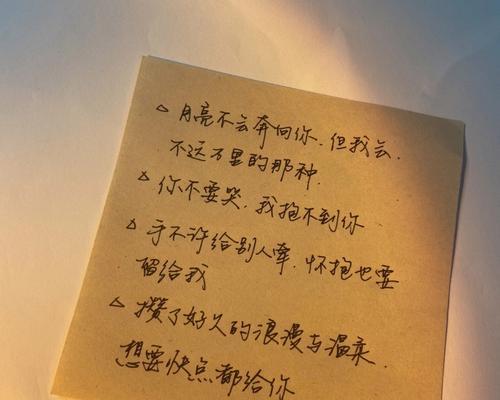 △ 月亮不会奔向你.但我会.
不远万里的那种.
△ 你不要哭.我抱不到你
△ 手不许给别人牵.怀抱也要
留给我
△ 攒了好久的浪漫与温柔.
想要快点都给你